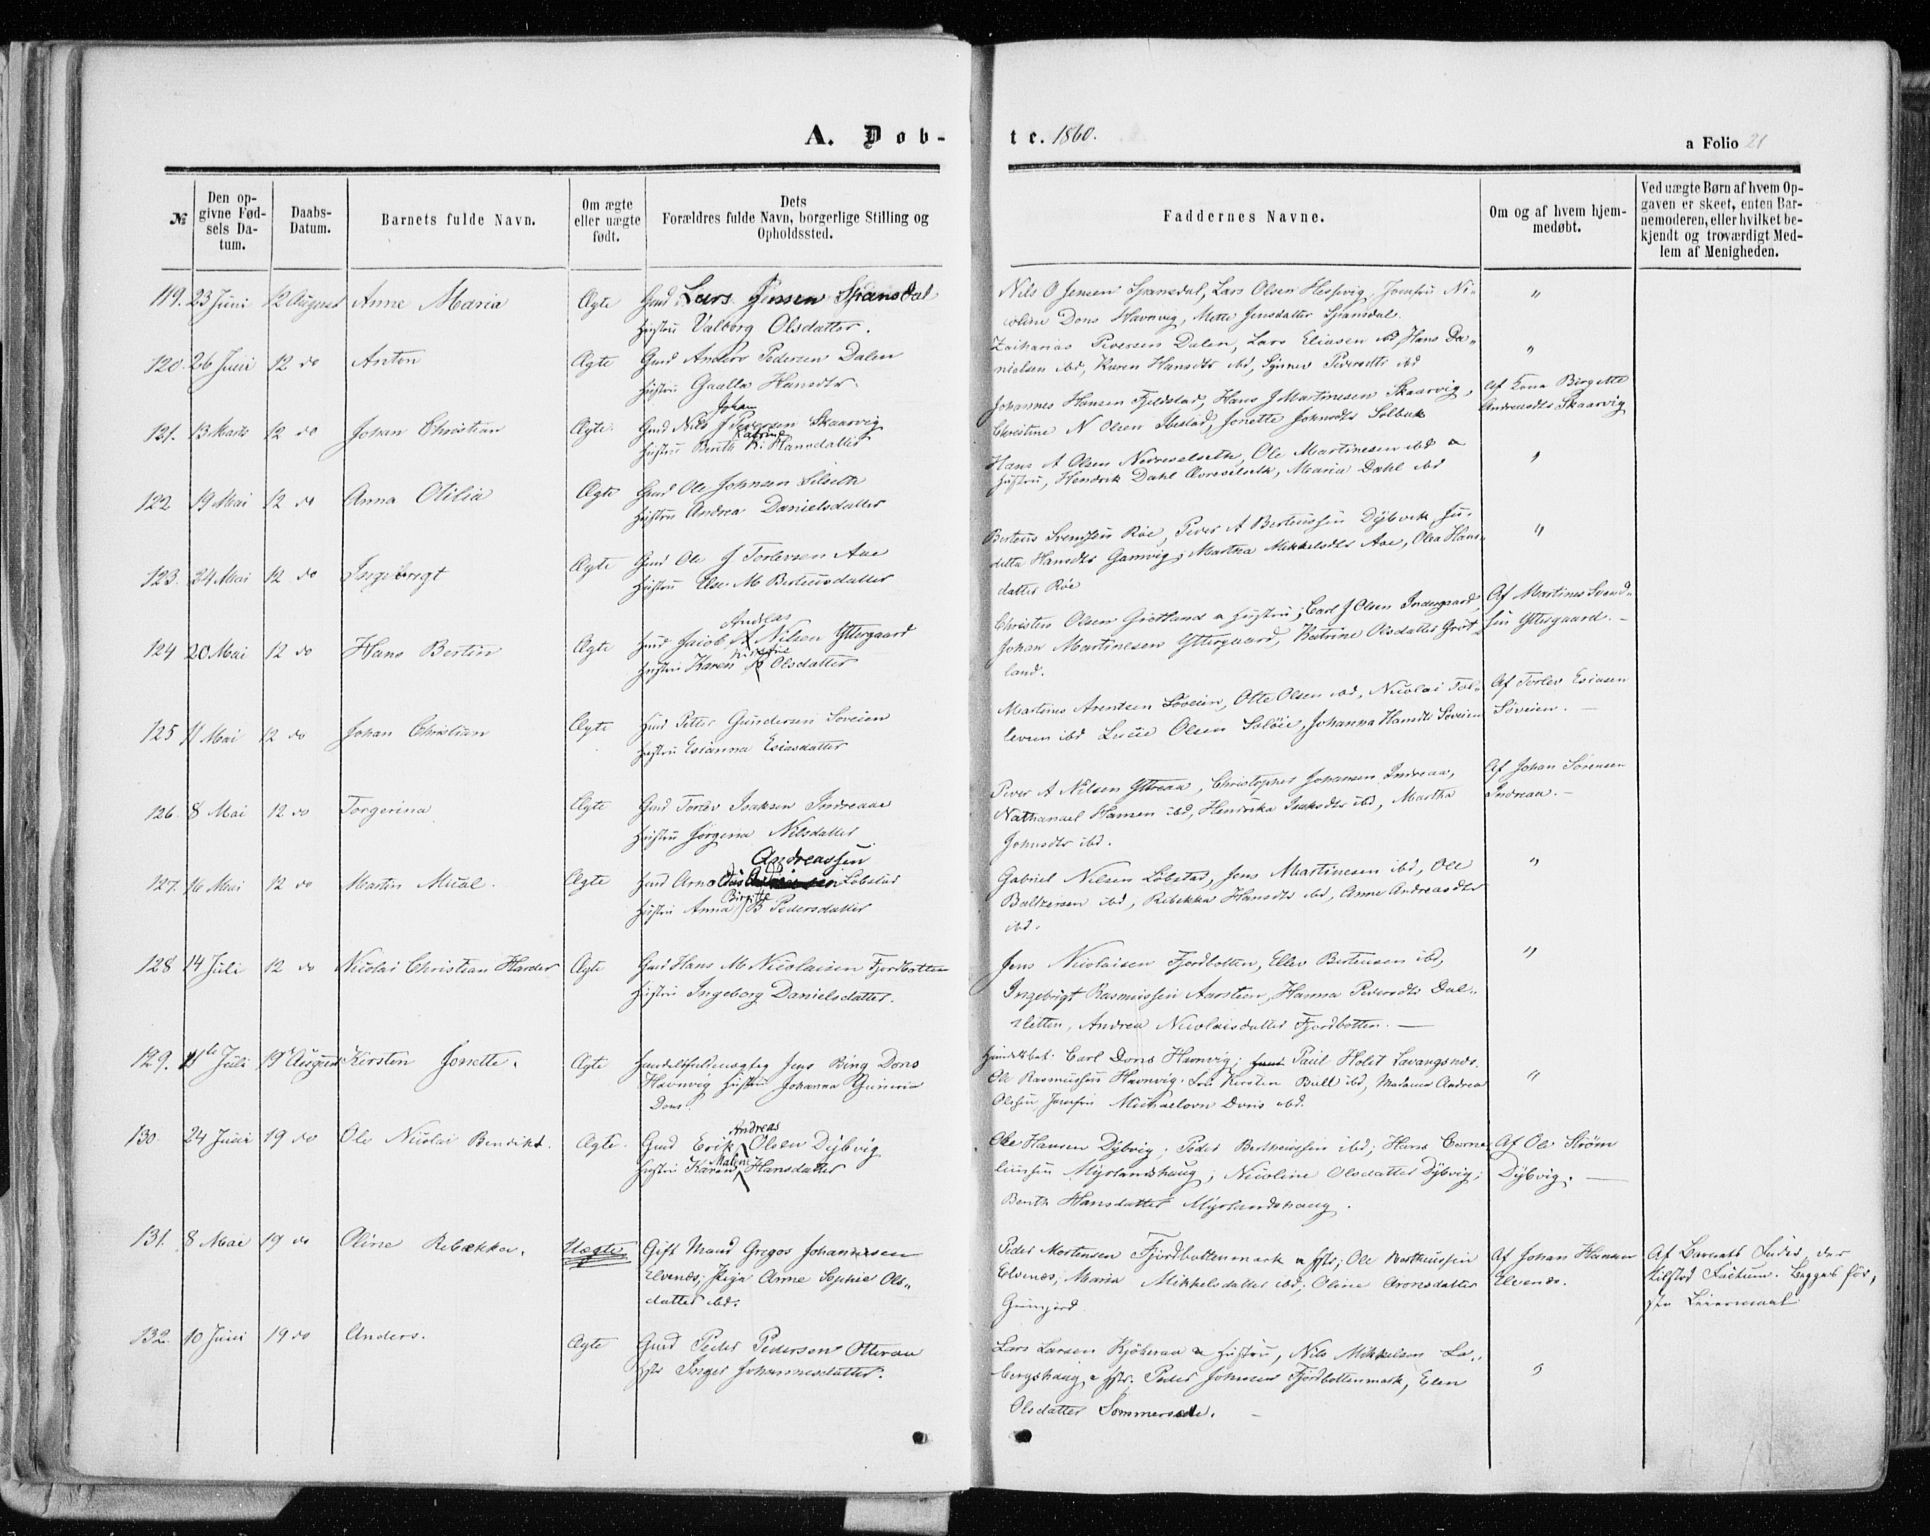 A. Døb-
te. 1860.
a Folio 21
№
Den op-
givne Fød-
sels Da-
tum.
Daabs-
Datum.
Barnets fulde Navn.
Om ægte
eller uægte
født.
Dets
Forældres fulde Navn, borgerlige Stilling og
Opholdssted.
Faddernes Navne.
Om og af hvem hjem-
medøbt.
Ved uægte Børn af hvem Op-
gaven er skeet, enten Bar-
nemoderen, eller hvilket be-
kjendt og troværdigt Med-
lem af Menigheden.
119. 23 Juni 12 August Anne Maria Ægte Gmd Lars Jensen Spansdal
Hustru Valborg Olsdatter.
Nils O Jensen Spansdal, Lars Olsen Hessevig, Jomfru Ni-
coline Dons Havnvig, Mette Jensdatter Spansdal.
"
120. 26 Juni 12 do Anton Ægte Gmd Anders Pedersen Dalen
Hustru Gaalla Hansdtr
Zacharias Peversen Dalen, Lars Eliasen ibd, Hans Da-
nielsen ibd, Karen Hansdtr ibd, Synnev Pedersdtr ibd
"
121. 13 Marts 12 do Johan Christian Ægte Gmd Nils J Pedersen Skaarvig
Johan
Hustru Berith K. Hansdatter
Katrine
Johannes Hansen Fjeldstad, Hans J Martinesen Skaarvig,
Christine N Olsen Ibestad, Jonette Johnsdtr Solbak
Af Kona Birgitte
Andreasdtr Skaarvig
122 19 Mai 12 do Anna Otilia Ægte Gmd Ole Johnsen Silseth
Hustru Andrea Danielsdatter
Hans A Olsen Nedreselseth, Ole Martinesen ibd &
Hustru, Hendrik Dahl Øvreselseth, Maria Dahl ibd
"
123. 24 Mai 12 do Ingebrigt Ægte Gmd Ole J Torlevsen Aae
Hustru Else M Berteusdatter
Berteus Svendsen Röe, Peder A Berteussen Dybvik, Ju-
ditta Hansdtr Gamvig, Martha Mikkelsdtr Aae, Olea Hans-
datter Röe
"
124 20 Mai 12 do Hans Bertin Ægte Gmd Jacob A Nilsen Yttergaard
Andreas
Hustru Karen K Olsdatter
Kirstine
Christen Olsen Grötland & Hustru, Carl J Olsen Indergaard,
Johan Martinesen Yttergaard, Katrine Olsdatter Gröt
land.
Af Martines Svend-
sen Yttergaard. —
125 11 Mai 12 do Johan Christian Ægte Gmd Petter Gundersen Söveien
Hustru Esianna Esiasdatter
Martines Arentsen Söveien, Otte Olsen ibd, Nicolai Tol-
levsen ibd Lucie Olsen Solöie, Johanna Hansdtr Söveien
Af Torlev Esiasen
Söveien. —
126. 8 Mai 12 do Torgerina Ægte Gmd Torlev Isaksen Indreaae
Hustru Jörgena Nilsdatter
Peder A Nilsen Yttreaa, Christopher Johansen Indreaa,
Nathanael Hansen ibd, Hendrika Isaksdtr ibd, Martha
Johnsdtr ibd.
Af Johan Sörensen
Indreaa. —
127. 16 Mai 12 do Martin Mical. Ægte Gmd Arnoldus Löbstad
Andreassen
Hustru Anna B Pedersdatter
Birgitte
Gabriel Nilsen Löbstad, Jens Martinesen ibd, Ole
Baltzersen ibd, Rebekka Hansdtr ibd, Anne Andreasdtr
ibd.
"
128 14 Juli 12 do Nicolai Christian Harder Ægte Gmd Hans M Nicolaisen Fjordbotten
Hustru Ingeborg Danielsdatter.
Jens Nicolaisen Fjordbotten, Ellev Bertensen ibd,
Ingebrigt Rasmussen Aarsteen, Hanna Pedersdtr Dal-
sletten, Andrea Nicolaisdatter Fjordbotten. —
"
129. 11te Juli 19 August Kirsten Jonette. Ægte Handelsfuldmægtig Jens Bing Dons
Havnvig Hustru Johanna
Dons.
Handelsbet. Carl Dons Havnvig, Paul Holst Lavangsnes.
Ole Rasmussen Havnvig. Kirsten Bull ibd, Madame Andrea
Olsen, Jomfru Dons ibd.
"
130. 24 Juni 19 do Ole Nicolai Bendikt. Ægte. Gmd Erik Olsen Dybvig
Andreas
Hustru Karen Hansdatter
Malene
Ole Hansen Dybvig, Peder Bertheussen ibd; Hans Corne
liussen Myrlandshaug; Nicoline Olsdatter Dybvig;
Berith Hansdatter Myrlandshaug.
Af Ole Ström
Dybvig. —
131. 8 Mai 19 do Oline Rebækka. Uægte Gift Mand Gregos Johannesen
Elvenæs; Pige Anne Sophie Ols-
datter ibd.
Peder Mortensen Fjordbottenmark & Hstr; Ole
Elvenæs; Maria Mikkelsdatter ibd; Oline Aronsdatter
Af Johan Hansen
Elvenæs.
Af Barnets Fader, der
tilstod Factum. Begges för-
ste Leiermaal
132. 10 Juni 19 do Anders. Ægte Gmd Peder Pedersen Otteraa
Hstr Inger Johannesdatter.
Lars Larsen Kjöberaa & Hustru, Nils Mikkelsen La-
bergshaug & Hstr. Peder Johnsen Fjordbottenmark, Elen
Olsdatter Sommersæde. —
"